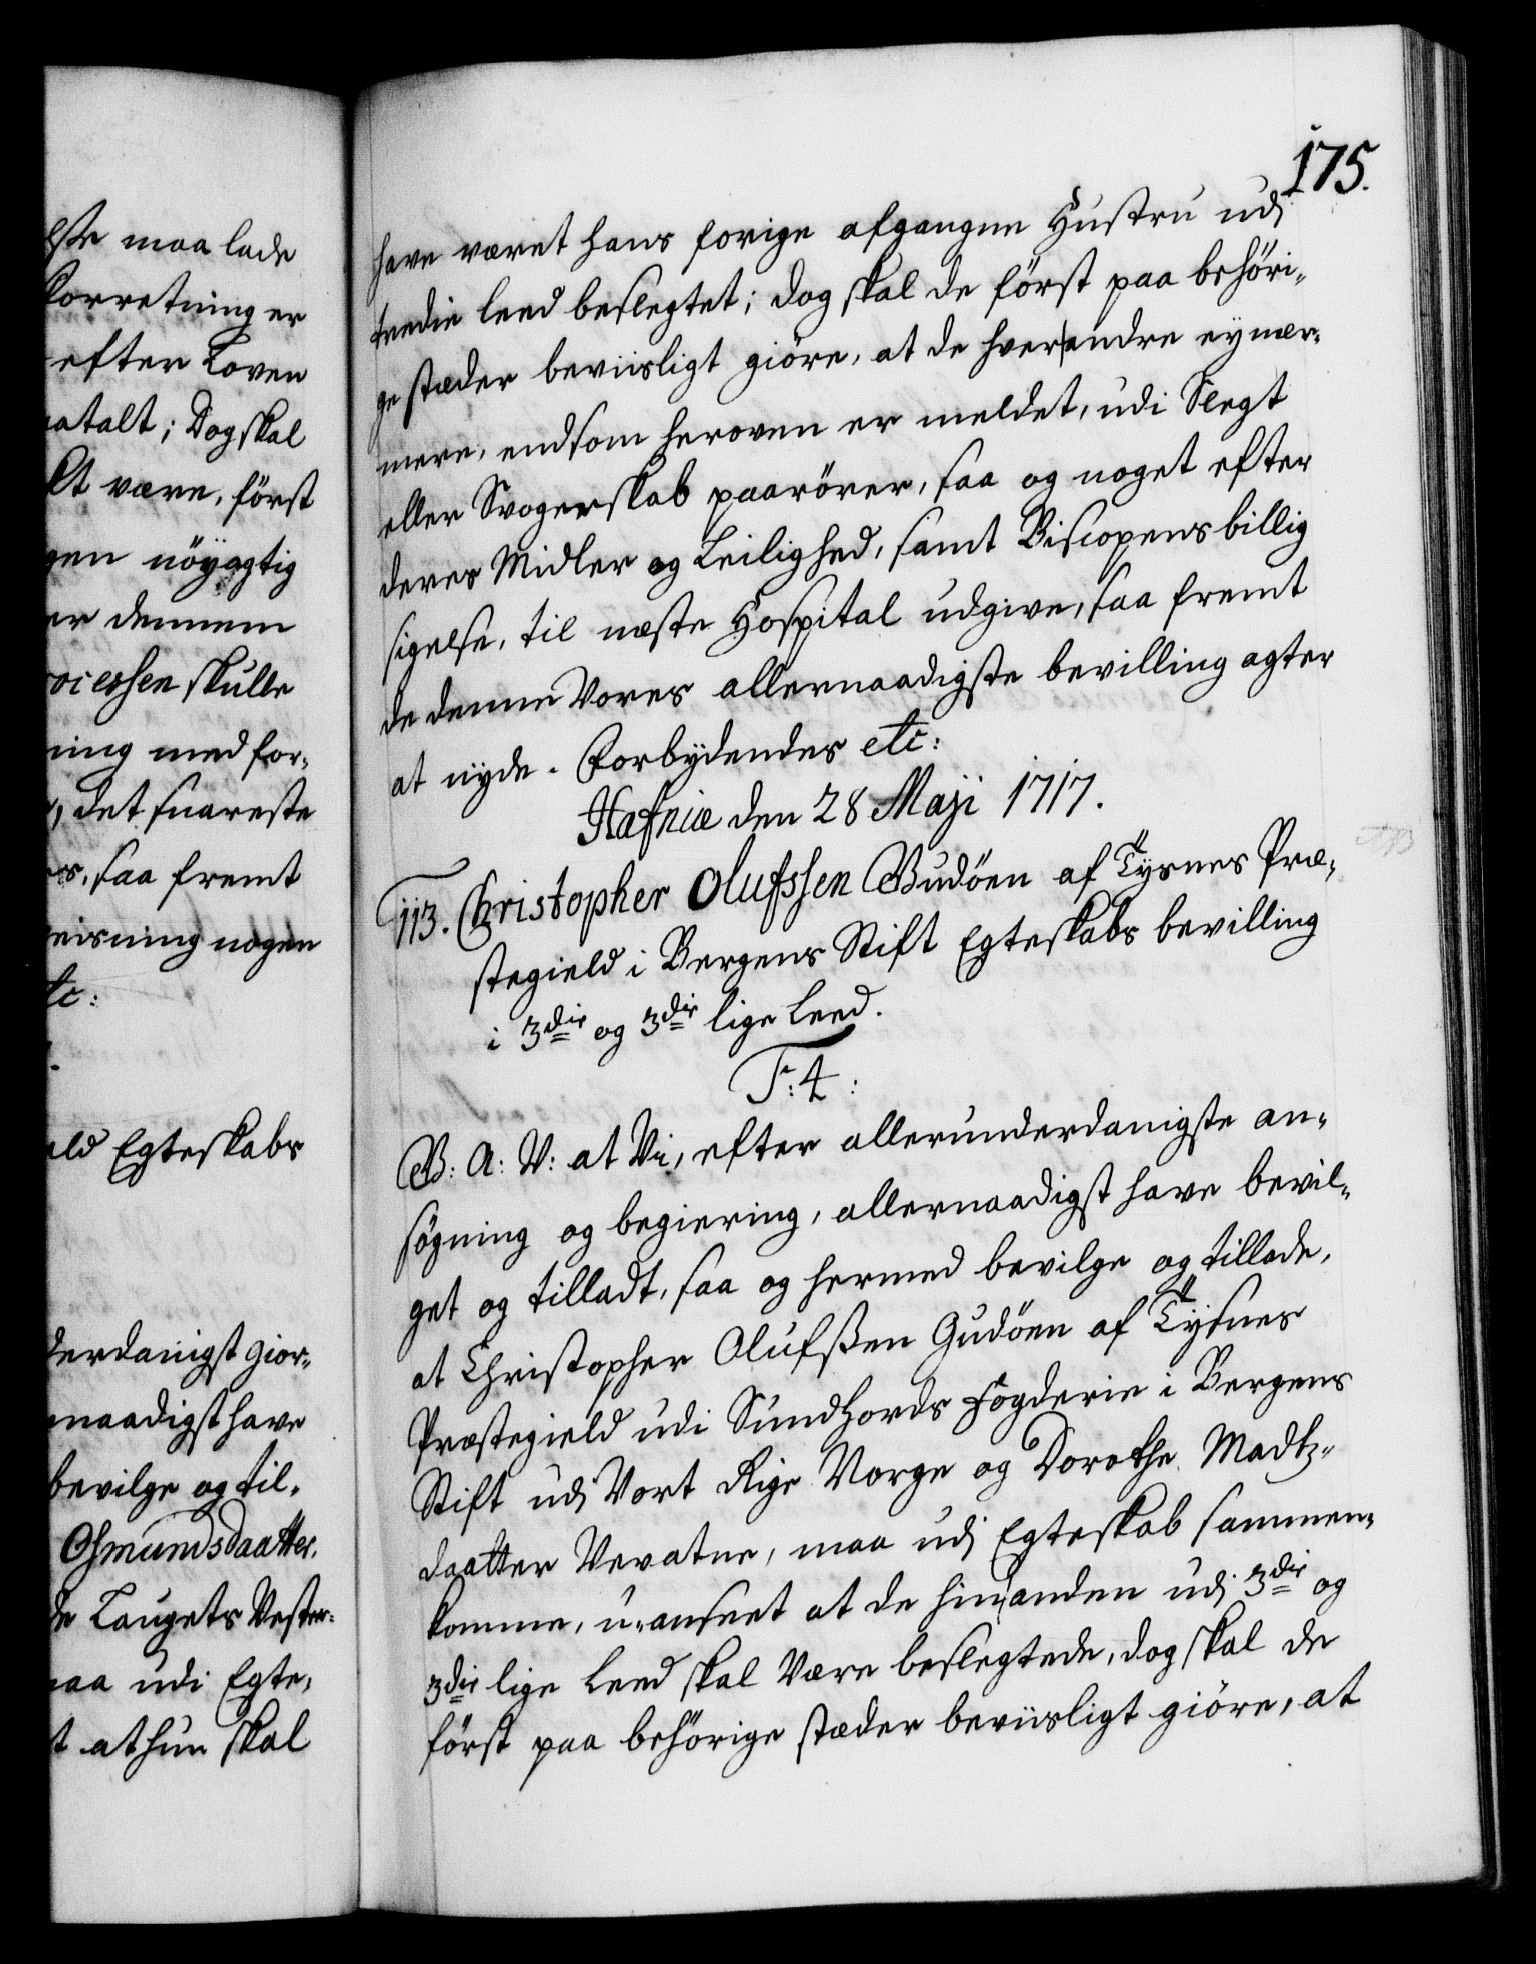 lste maa lade
Forretning er
efter Loven
atalt; Dog skal
lt være, först
gen nöyagtig
er dennem
ocessen skulle
ning med for-
, det snareste
s, saa fremt
eisning nogen
tc:
eld Egteskabs
derdanigst gior-
naadigst have
bevilge og til-
Osmundsdaatter,
de Laugets Vester-
aa udi Egte-
t at hun skal
175.
have været hans forige afgangne Hustru udj
tredie leed beslegtet; dog skal de först paa behöri-
ge stæder beviisligt giöre, at de hverandre ey nær-
mere, end som heroven er meldet, udi Slegt
eller Svogerskab paarörer, saa og noget efter
deres Midler og Leilighed, samt Biscopens billig
sigelse, til næste Hospital udgive, saa fremt
de denne Vores allernaadigste bevilling agter
at nyde. Forbydendes etc:
Hafniæ den 28 Maji 1717.
113. Christopher Olufssen Gudöen af Tysnes Præ-
stegield i Bergens Stift Egteskabs bevilling
i 3die og 3die lige Leed.
F: 4:
G: A: V: at Vi, efter allerunderdanigste an-
søgning og begiering, allernaadigst have bevil-
get og tilladt, saa og hermed bevilge og tillade,
at Christopher Olufssen Gudöen af Tysnes
Præstegield udi Sundhords Fogderie i Bergens
Stift udj Vort Rige Norge og Dorothe Madtz-
daatter Vevatne, maa udj Egteskab sammen-
komme, u-anseet at de hinanden udj 3die og
3die lige Leed skal Være beslegtede, dog skal de
först paa behörige stæder beviisligt giöre, at